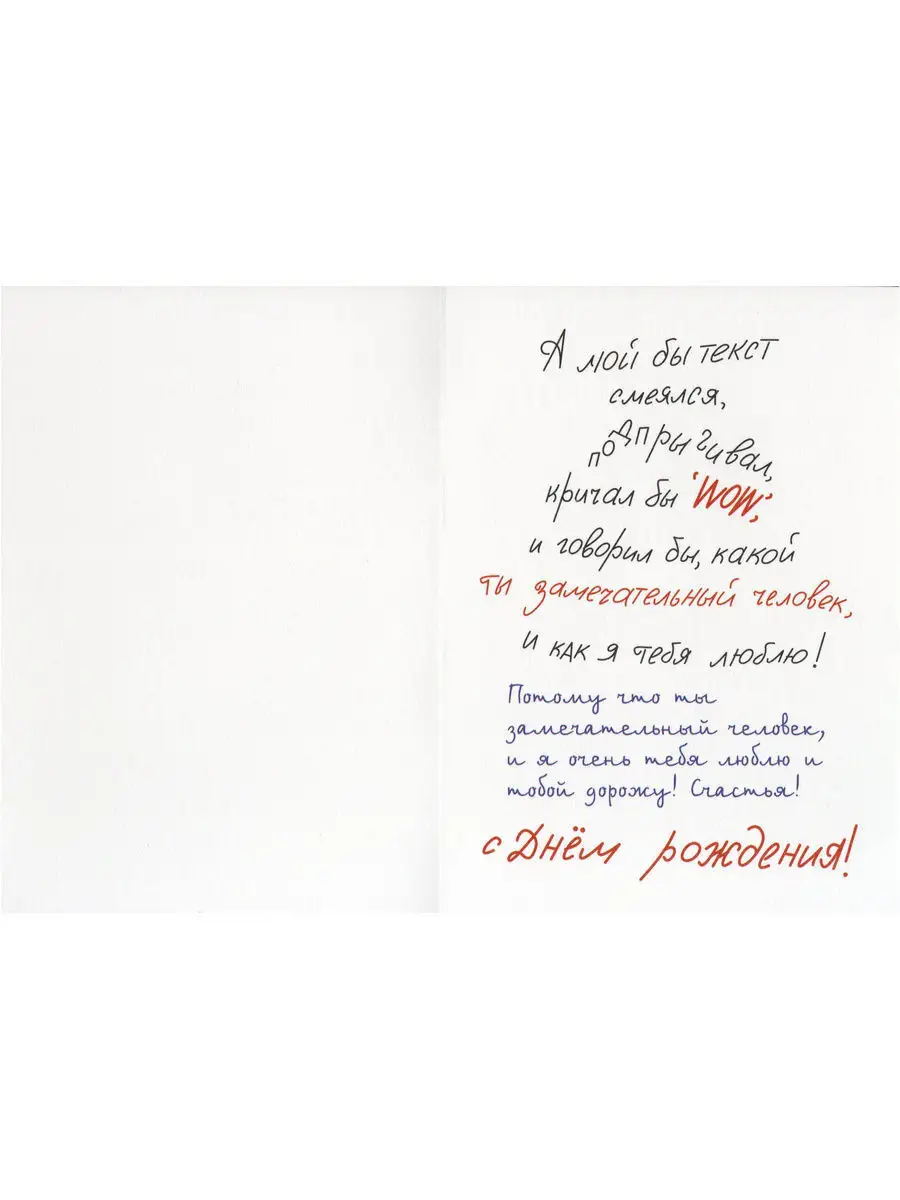 А мой бы текст
смеялся,
подпрыгивал,
кричал бы 'WOW',
и говорил бы, какой
ты замечательный человек,
и как я тебя люблю!
Потому что ты
замечательный человек,
и я очень тебя люблю и
тобой дорожу! Счастья!
с Днём рождения!